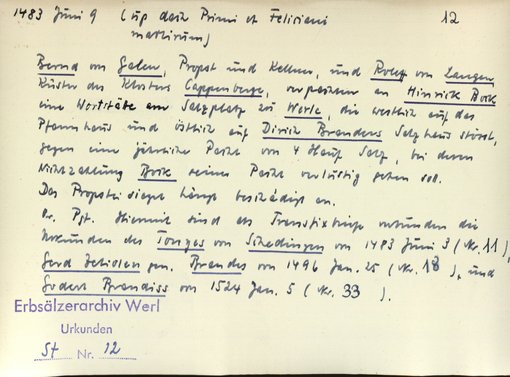 1483 Juni 9 (up dach Primi et Feliciani 12
martirum)
Bernd von Galen, Propst und Kellner, und Roleff von Langen
Küster des Klosters Cappenberg, verpachten an Hinrick Bock
eine Wortstätte am Salzplatz zu Werle, die westlich auf das
Pfannhaus und östlich auf Dirich Brandens Salzhaus stösst,
gegen eine jährliche Pacht von 4 Salz, bei deren
Nichtzahlung Bock seiner Pacht verlustig gehen soll.
Das Propsteisiegel hängt beschädigt an.
Or. Pgt. Hiermit sind als Transfixbriefe verbunden die
Urkunden des Tonyes von Schedingen von 1483 Juni 3 (Nr. 11),
Gerd gen. Brandes von 1496 Jan. 25 (Nr. 18), und
Godert Brandiss von 1524 Jan. 5 (Nr. 33).
Erbsälzerarchiv Werl
Urkunden
St Nr. 12